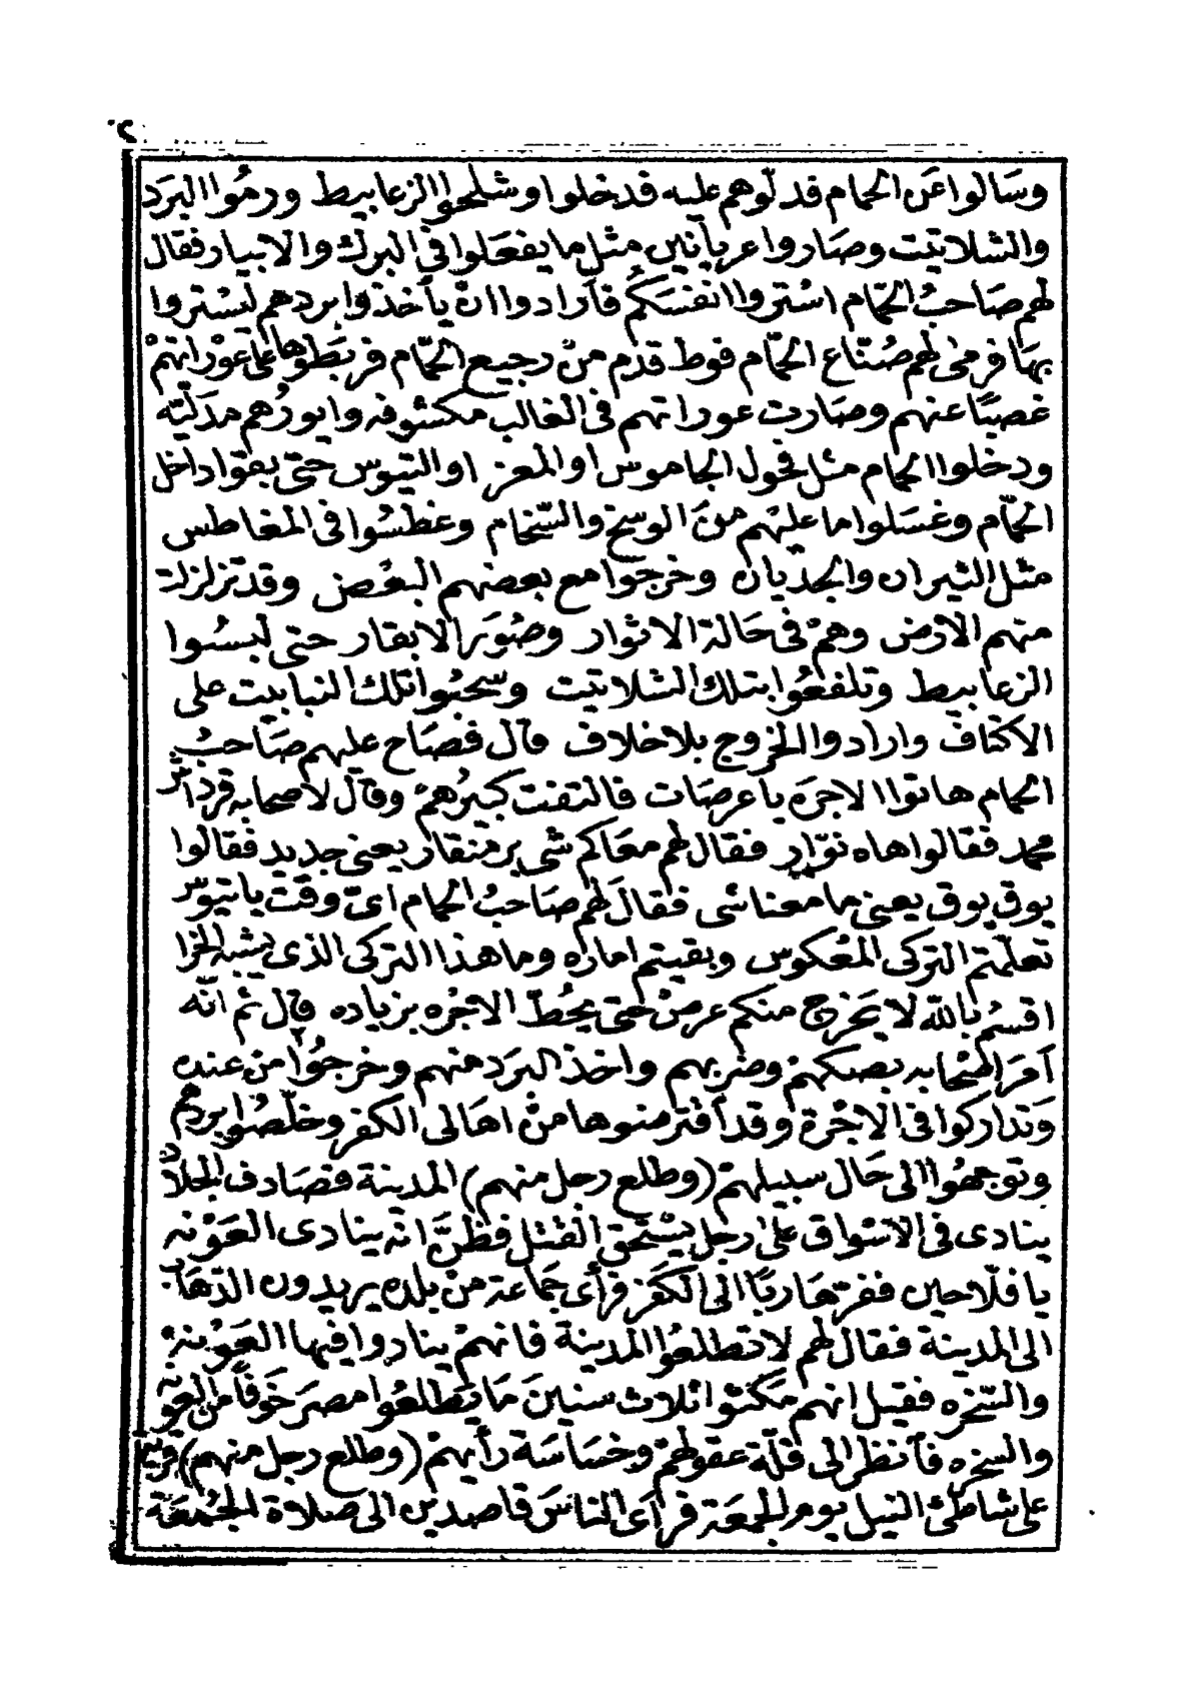 وسَالوا عَن الحمام فدلّوهم عليه فدخلوا وشلحوا الزعابيط ورمُوا البرَد
والشلاتيت وصَاروا عريانين مثل ما يفعَلوا في البرك والابيار فقال
لهم صَاحبُ الحمّام استروا انفسَكُم فارادوا ان ياخذوا بردهم ليستروا
بهَا فرمىٰ لهم صُنّاع الحمّام فوط قدُم منْ رجيع الحمّام فربَطوُها على عورَاتهمْ
غصبًا عنهم وصَارت عوراتهم في الغالب مكشوفه وايورُهم مدَليّه
ودخلوا الحمام مثل فحول الجاموس او المعز او التيوس حتى بقوا داخل
الحمّام وغسَلوا ما عليهم منَ الوسخ والسّخام وغطسُوا في المغاطس
مثل الثيران والجدّيان وخرجوا مع بعضهم البعُض وقد تزلزلت
منهم الارض وهمْ في حَالة الاثوار وصُوَر الابقار حتى لبسُوا
الزعابيط وتلفعُوا بتلك الشلاتيت وسحبُوا تلك النبابيت على
الاكتاف وارادوا الخروج بلا خلاف قال فصَاح عليهم صَاحبُ
الحمام هاتوا الاجرَه يا عرصَات فالتفت كبيرُهمْ وقال لاصحابه قرداش
محمد فقالوا هاه نوّار فقال لهم معَاكم شي برمنقار يعني جديد فقالوا
يوق يوق يعني ما معناشى فقالَ لهم صَاحبُ الحمام اىّ وقت يا تيوس
تعلمّتم التركى المعُكوس وبقيتم اماره وما هذا التركى الذى يشبه الخرا
اقسمُ بالله لا يَخرج منكم عرصْ حتى يحُطّ الاجُره بزياده قال ثم انّه
اَمَرَ اصْحابه بصكهمْ وضربهم واخذ البَرَد منهم وخرجُوا من عنده
وَتداركوا في الاجْرة وقد اقترضوها منْ اهَالى الكفر وخلّصُوا بردهم
وتوجهُوا الى حَال سبيلهمْ (وطلع رجل منهم) المدينة فصَادف الجلاّد
ينادى في الاسْواق علىٰ رجل يسْتحق القتْل فظنَّ انّه ينادى العَوْنه
يا فلاّحين ففرّ هَاربًا الى الكَفر فرأى جَماعة منْ بلده يريدون الذهَاب
الى المدينة فقال لهم لا تطلعُوا المدينة فانهمْ ينادوا فيها العَوْنهْ
والسّخره فقيل انهم مَكثوا ثلاث سنينَ مَا يَطلعُوا مصرَ خَوفًا من العوْنه
والسخره فانظر الى قلّة عقولهمْ وخسَاسَة رأيهمْ (وطلع رجل منهم)
على شاطئ النيل يوم الجمعَة فرأى الناسَ قاصدين الى صلاة الجُمعَة